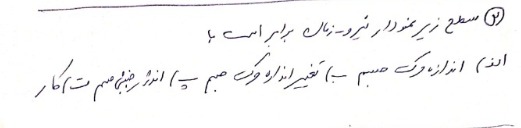 ۲) سطح زیر نمودار نیرو-زمان برابر است با
الف) اندازه حرکت جسم ب) تغییر اندازه حرکت جسم پ) انرژی جنبشی جسم ت) کار